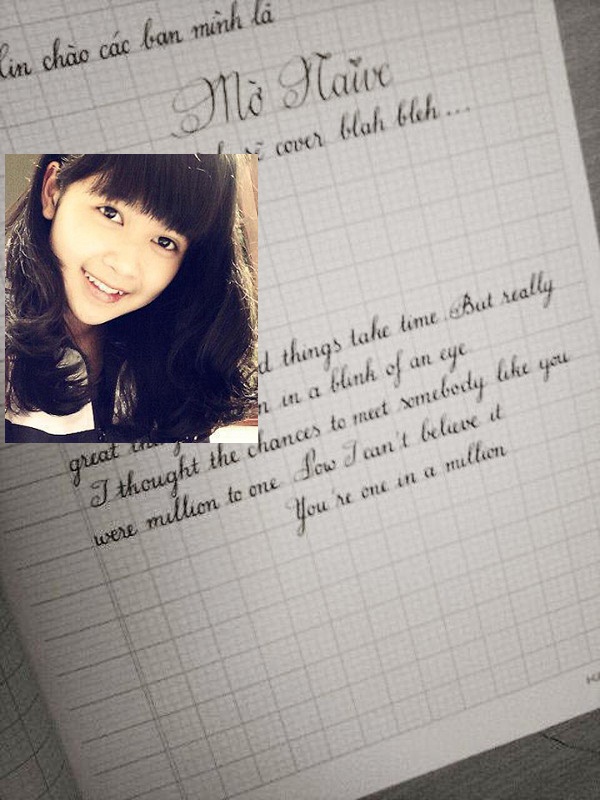 chào các bạn mình là
Mờ Naive
sẽ cover blah bleh...
things take time. But really
great in a blink of an eye
I thought the chances to meet somebody like you
were million to one. Now I can't believe it
You're one in a million